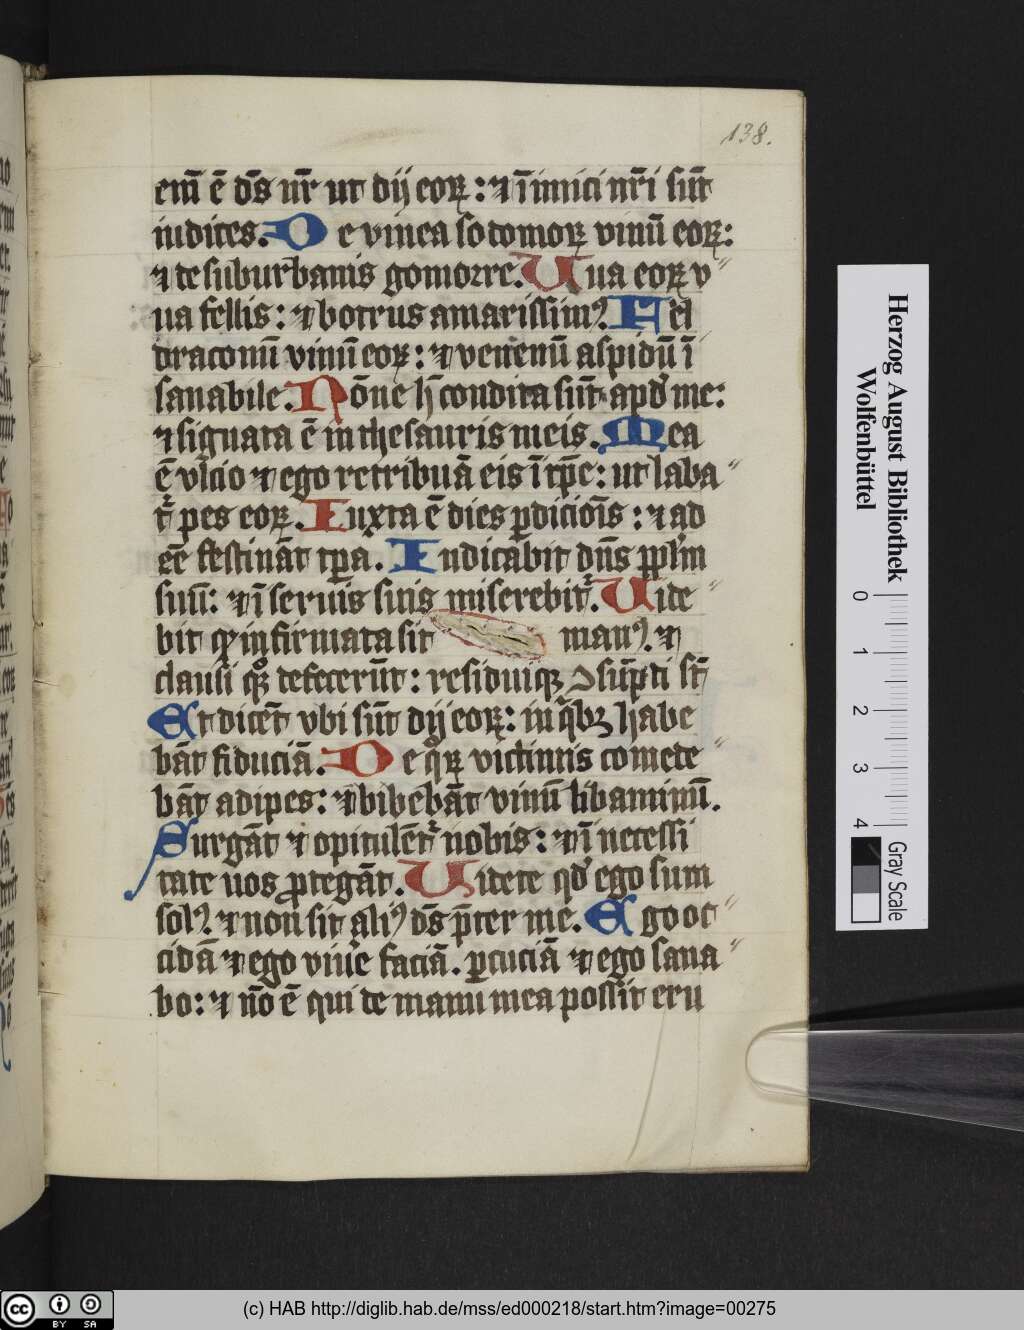 138.
em̄ ē dn̄s nr̄ ut dij eoꝝ: ⁊ īimici nr̄i sūt
iudices. De vinea sodomoꝝ vinū eoꝝ:
⁊ de suburbanis gomorre. Uua eoꝝ v〃
ua fellis: ⁊ botrus amarissimꝰ. Fel
draconū vinū eoꝝ: ⁊ venenū aspidū ī
sanabile. Nōne h̄ condita sūt apd̓ me:
⁊ signata ē in thesauris meis. Mea
ē vlcio ⁊ ego retribuā eis ī tp̄e: ut laba〃
t᷑ pes eoꝝ. Iuxta ē dies ꝑdicioīs: ⁊ ad
eē festināt tꝑa. Indicabit dn̄s pplm̄
suū: ⁊ ī seruis suis miserebit᷑. Uide〃
bit ꝙ infirmata sit manꝰ. ⁊
clausi qͦꝫ defecerūt: residuiqꝫ ↄsūpti st̄
Et dicēt vbi sūt dij eoꝝ: in qͥbꝫ habe
bāt fiduciā. De qͦꝝ victimis comede〃
bāt adipes: ⁊ bibebāt vinū libaminū.
Surgāt ⁊ opitulēt᷑ nobis: ⁊ ī necessi
tate uos ꝓtegāt. Uidete qd̓ ego sum
solꝰ ⁊ non sit aliꝰ ds̄ p̄ter me. Ego oc〃
cidā ⁊ ego viue̓ faciā. ꝑcuciā ⁊ ego sana〃
bo: ⁊ nō ē qui de manu mea possit eru
Herzog August Bibliothek
Wolfenbüttel
0 1 2 3 4
Gray Scale
cc BY SA
(c) HAB http://diglib.hab.de/mss/ed000218/start.htm?image=00275